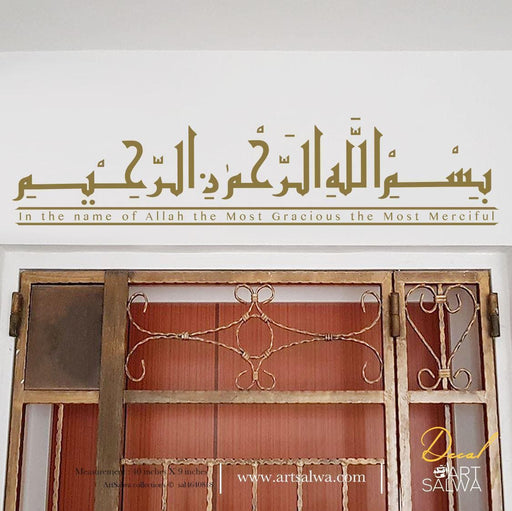 بِسْمِ اللَّهِ الرَّحْمَٰنِ الرَّحِيمِ
In the name of Allah the Most Gracious the Most Merciful
Measurement : 40 inches X 9 inches
© ArtSalwa collections ©
www.artsalwa.com
Decal
ART
SALWA